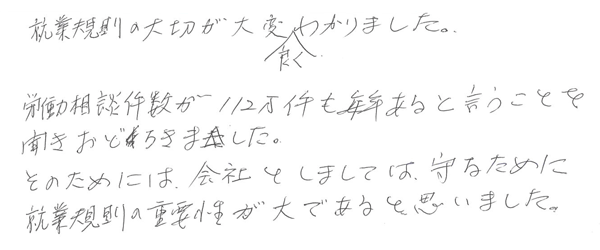 就業規則の大切が大変良くわかりました。
労働相談件数が112万件も毎年あると言うことを
聞きおどろきました。
そのためには、会社としましては、守るために
就業規則の重要性が大であると思いました。